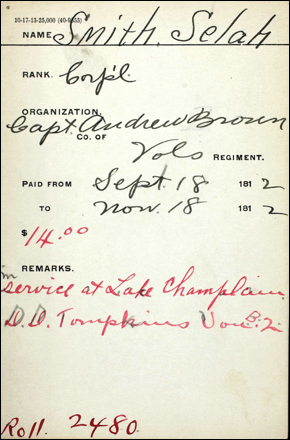 10-17-13-25,000 (40-8355)
NAME Smith, Selah
RANK. Corp'l.
ORGANIZATION.
Capt. Andrew Brown
CO. OF
Vols REGIMENT.
PAID FROM Sept. 18 1812
TO Nov. 18 1812
$14.00
REMARKS.
in
service at Lake Champlain.
D.D. Tompkins Vou. B. 2
Roll. 2480.